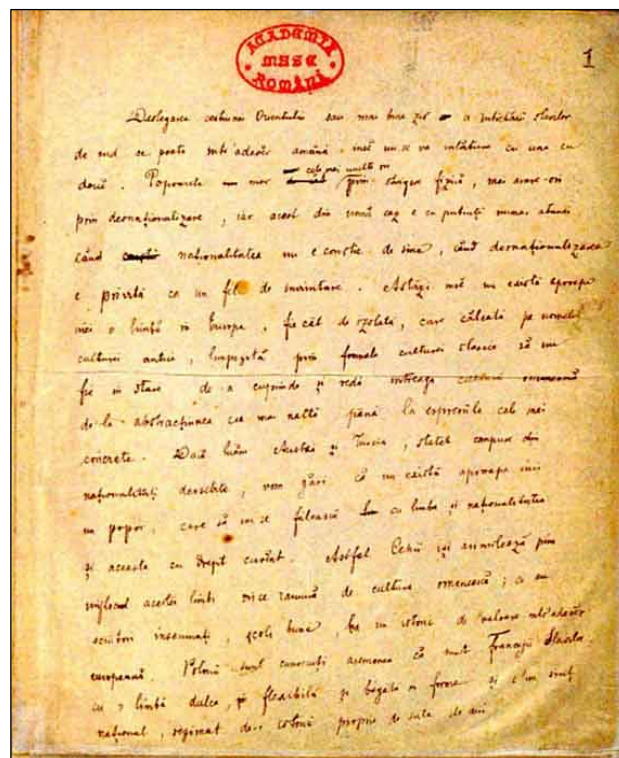 ACADEMIA
MSSE
ROMÂNĂ
1
Deslegarea cestiunei Orientului sau mai bine zis a slavilor
de sud se poate într'adevăr amâna, însă nu se va înlătura cu una cu
două. Popoarele mor cele mai multe ori prin stingere fizică, mai arare-ori
prin desnaționalizare, iar acest din urmă caz e cu putință numai atunci
când naționalitatea nu e conștie de sine, când desnaționalizarea
e privită ca un fel de înaintare. Astăzi însă nu există aproape
nici o limbă în Europa, fie cât de izolată, care călcată pe
culturei antice, limpezită prin formele culturei clasice să nu
fie în stare de a cuprinde și reda întreaga
de la abstracțiunea cea mai naltă până la espresiile cele mai
concrete. Dacă luăm Austria și Turcia, statele compuse din
naționalități deosebite, vom găsi că nu există aproape nici
un popor, care să nu se fălească cu limba și naționalitatea
și aceasta cu drept cuvânt. Astfel Cehii își asimilează prin
mijlocul acestei limbi orice ramură de cultură omenească; ei au
scriitori însemnați, școli bune, de valoare într'adevăr
europeană. Polonii sunt cunoscuți asemenea că sunt Francejii Slavilor.
cu o limbă dulce, și flexibilă și bogată în forme și c'un simț
național, de o istorie proprie de sute de ani